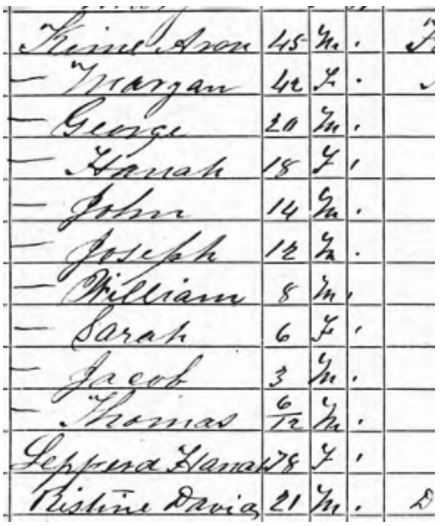 Kime Aron 45 M.
— Margan 42 F.
— George 20 M.
— Hanah 18 F.
— John 14 M.
— Joseph 12 M.
— William 8 M.
— Sarah 6 F.
— Jacob 3 M.
— Thomas 6/12 M.
Lepperd Hanah 78 F.
Ristine David 21 M. D